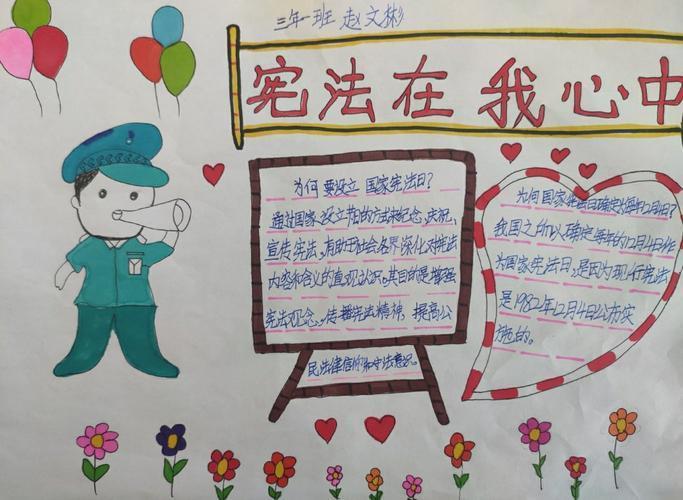 三年一班 赵文彬
宪法在我心中
为何要设立国家宪法日?
通过国家设立节日的方式来纪念、庆祝、
宣传宪法,有助于社会各界深化对宪法
内容和含义的直观认识。其目的是增强
宪法观念,传播宪法精神,提高公
民法律信仰和守法意识。
为何国家宪法日确定为每年12月4日?
我国之所以确定每年的12月4日作
为国家宪法日,是因为现行宪法
是1982年12月4日公布实
施的。